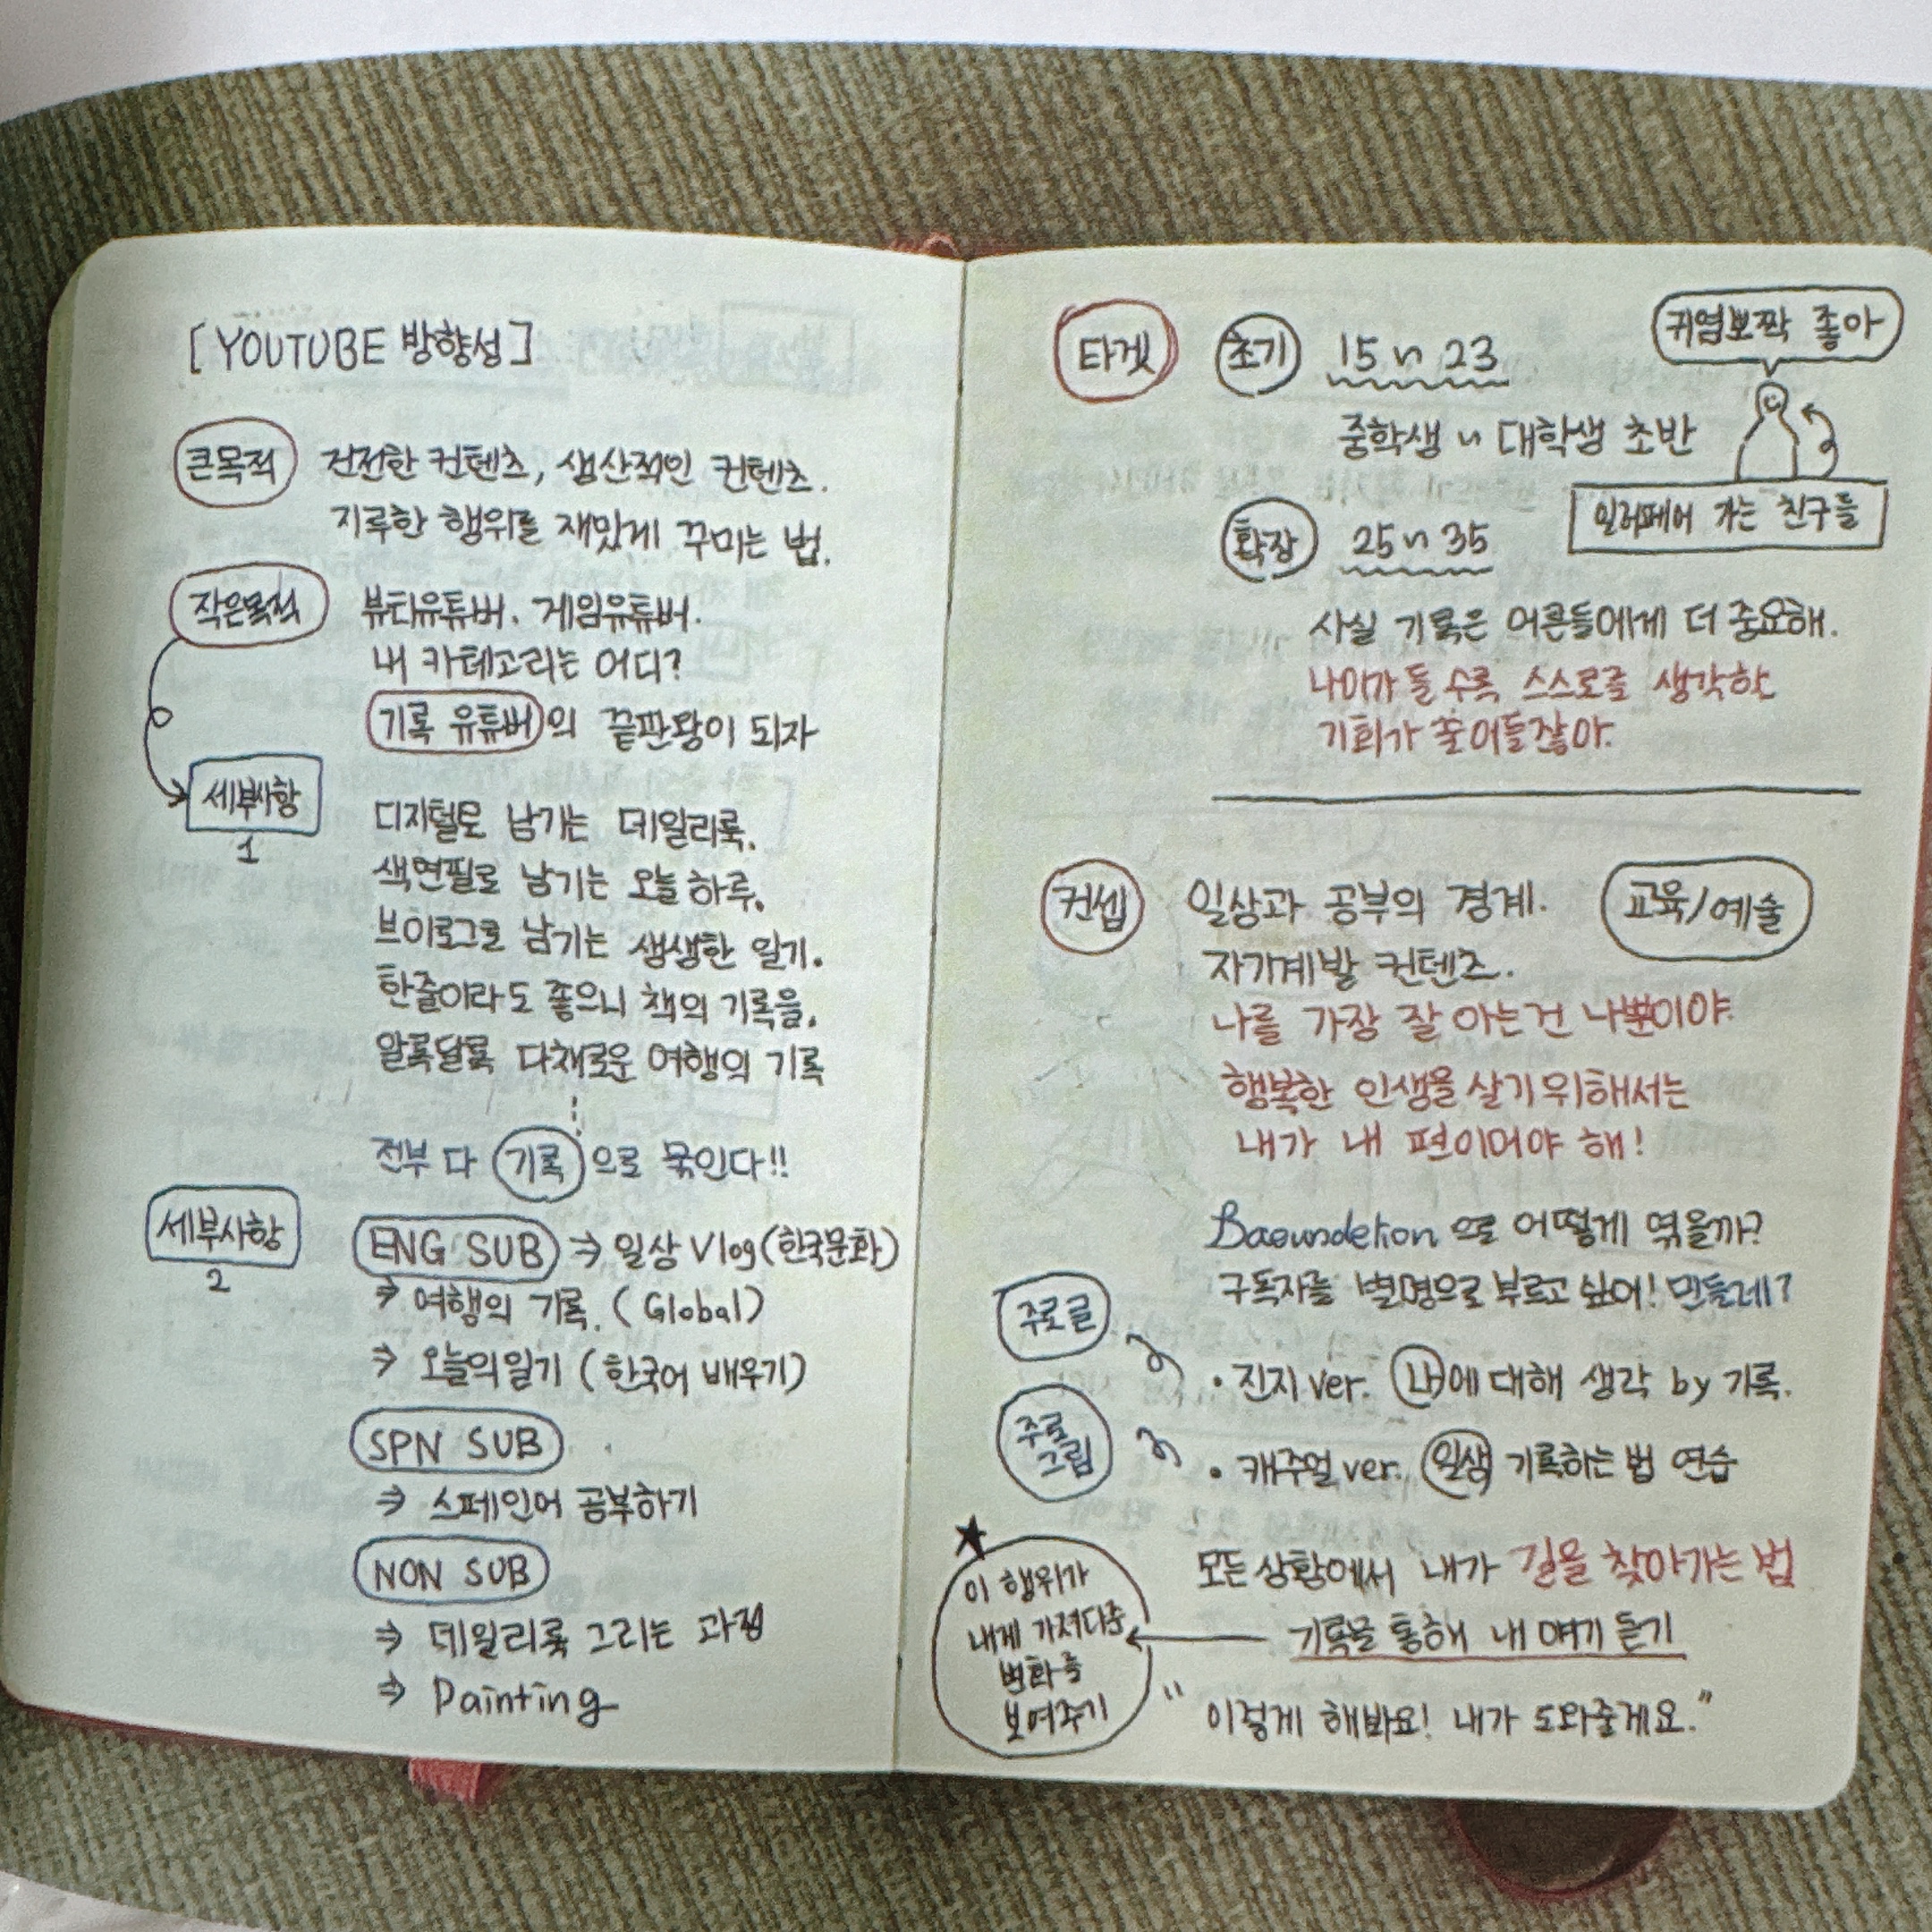 [YOUTUBE 방향성]
큰목적 건전한 컨텐츠, 생산적인 컨텐츠.
지루한 행위를 재밌게 꾸미는 법.
작은목적 뷰티유튜버. 게임유튜버.
내 카테고리는 어디?
기록 유튜버의 끝판왕이 되자
세부사항
1
디지털로 남기는 데일리룩.
색연필로 남기는 오늘 하루.
브이로그로 남기는 생생한 일기.
한줄이라도 좋으니 책의 기록을.
알록달록 다채로운 여행의 기록
전부 다 기록으로 묶인다!!
세부사항
2
ENG SUB ⇒ 일상 Vlog (한국문화)
⇒ 여행의 기록. (Global)
⇒ 오늘의일기 (한국어 배우기)
SPN SUB
⇒ 스페인어 공부하기
NON SUB
⇒ 데일리룩 그리는 과정
⇒ Painting
타겟 초기 15~23
중학생 ~ 대학생 초반
귀염뽀짝 좋아
일러페어 가는 친구들
확장 25~35
사실 기록은 어른들에게 더 중요해.
나이가 들 수록 스스로를 생각할
기회가 줄어들잖아.
컨셉 일상과 공부의 경계. 교육/예술
자기계발 컨텐츠.
나를 가장 잘 아는건 나뿐이야.
행복한 인생을 살기 위해서는
내가 내 편이어야 해!
으로 어떻게 엮을까?
구독자를 별명으로 부르고 싶어! 민들레?
주로글
• 진지 ver. 나에 대해 생각 by 기록.
주로
그림
• 캐주얼 ver. 일상 기록하는 법 연습
모든 상황에서 내가 길을 찾아가는 법
기록을 통해 내 얘기 듣기
★
이 행위가
내게 가져다준
변화를
보여주기
"이렇게 해봐요! 내가 도와줄게요."